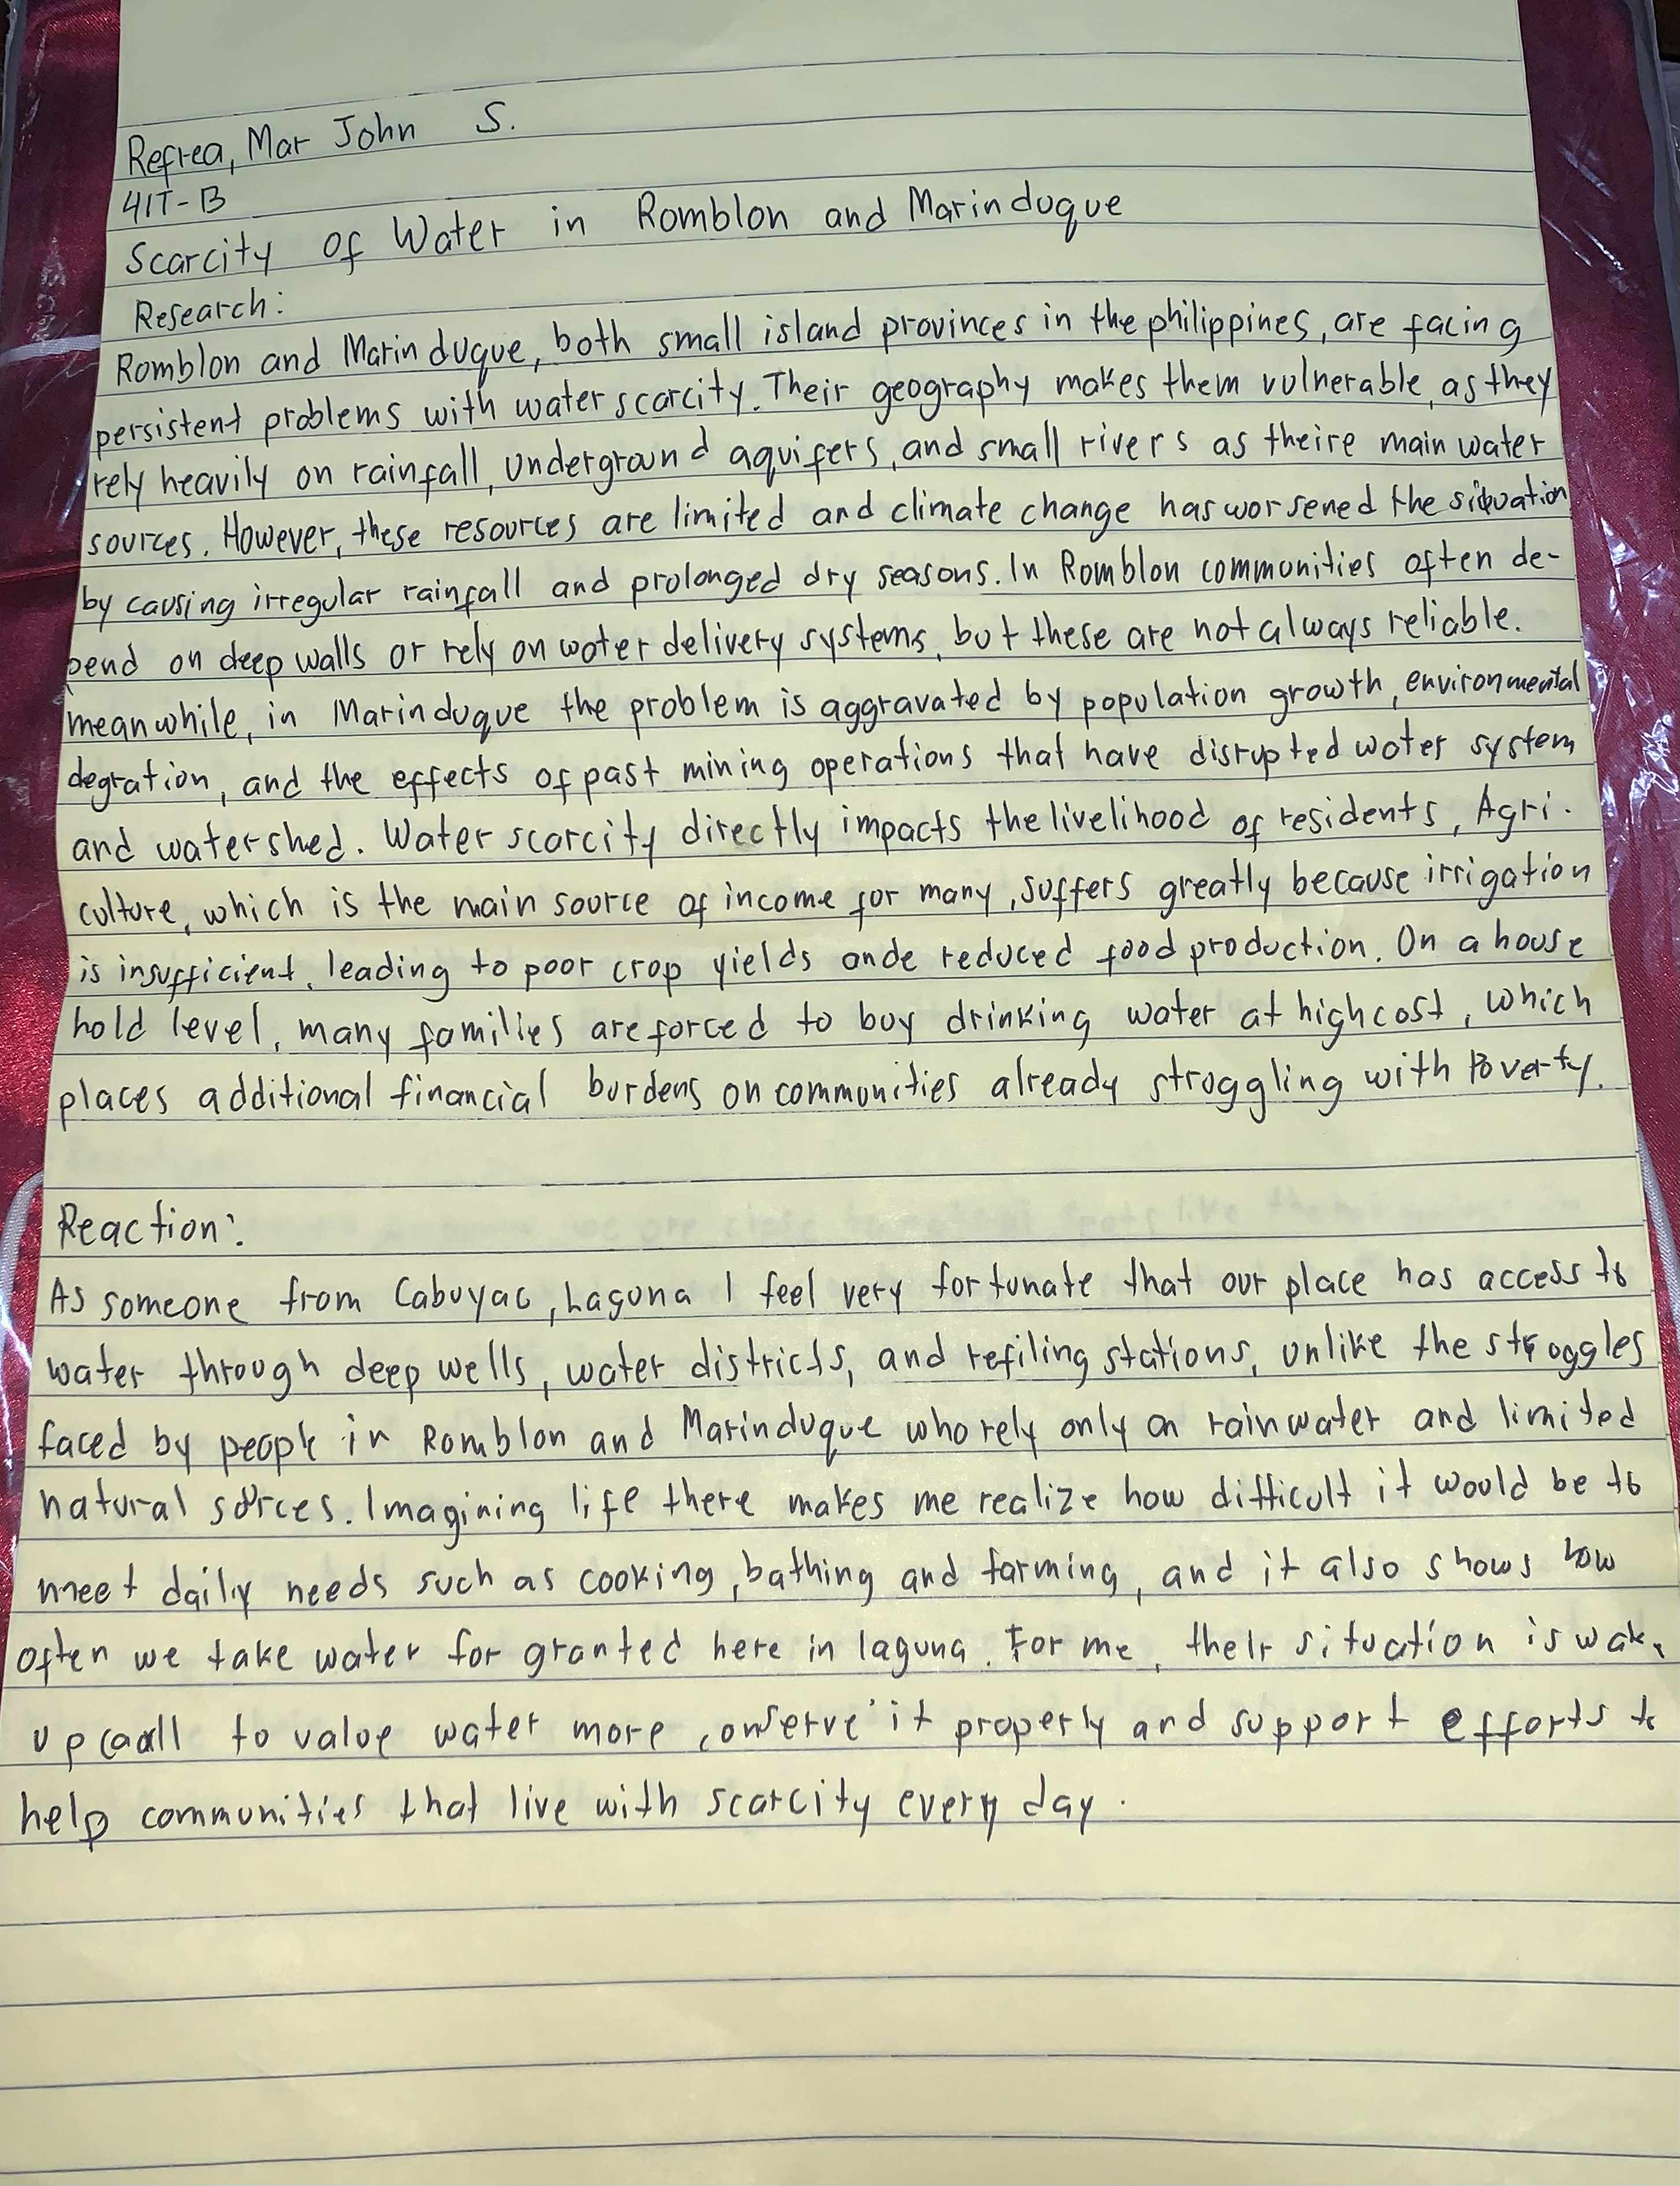 Refrea, Mar John S.
4IT-B
Scarcity of Water in Romblon and Marinduque
Research:
Romblon and Marinduque, both small island provinces in the philippines, are facing
persistent problems with water scarcity. Their geography makes them vulnerable, as they
rely heavily on rainfall, underground aquifers, and small rivers as theire main water
sources. However, these resources are limited and climate change has worsened the situation
by causing irregular rainfall and prolonged dry seasons. In Romblon communities often de-
pend on deep walls or rely on water delivery systems, but these are not always reliable.
meanwhile, in Marinduque the problem is aggravated by population growth, environmental
degration, and the effects of past mining operations that have disrupted water system
and watershed. Water scarcity directly impacts the livelihood of residents, Agri-
culture, which is the main source of income for many, suffers greatly because irrigation
is insufficient, leading to poor crop yields ande reduced food production. On a house
hold level, many families are forced to buy drinking water at high cost, which
places additional financial burdens on communities already struggling with Poverty.
Reaction:
As someone from Cabuyao, Laguna I feel very fortunate that our place has access to
water through deep wells, water districts, and refiling stations, unlike the struggles
faced by people in Romblon and Marinduque who rely only on rainwater and limited
natural sources. Imagining life there makes me realize how difficult it would be to
meet daily needs such as cooking, bathing and farming, and it also shows how
often we take water for granted here in laguna. For me, their situation is wake
up call to value water more, conserve it properly and support efforts to
help communities that live with scarcity every day.